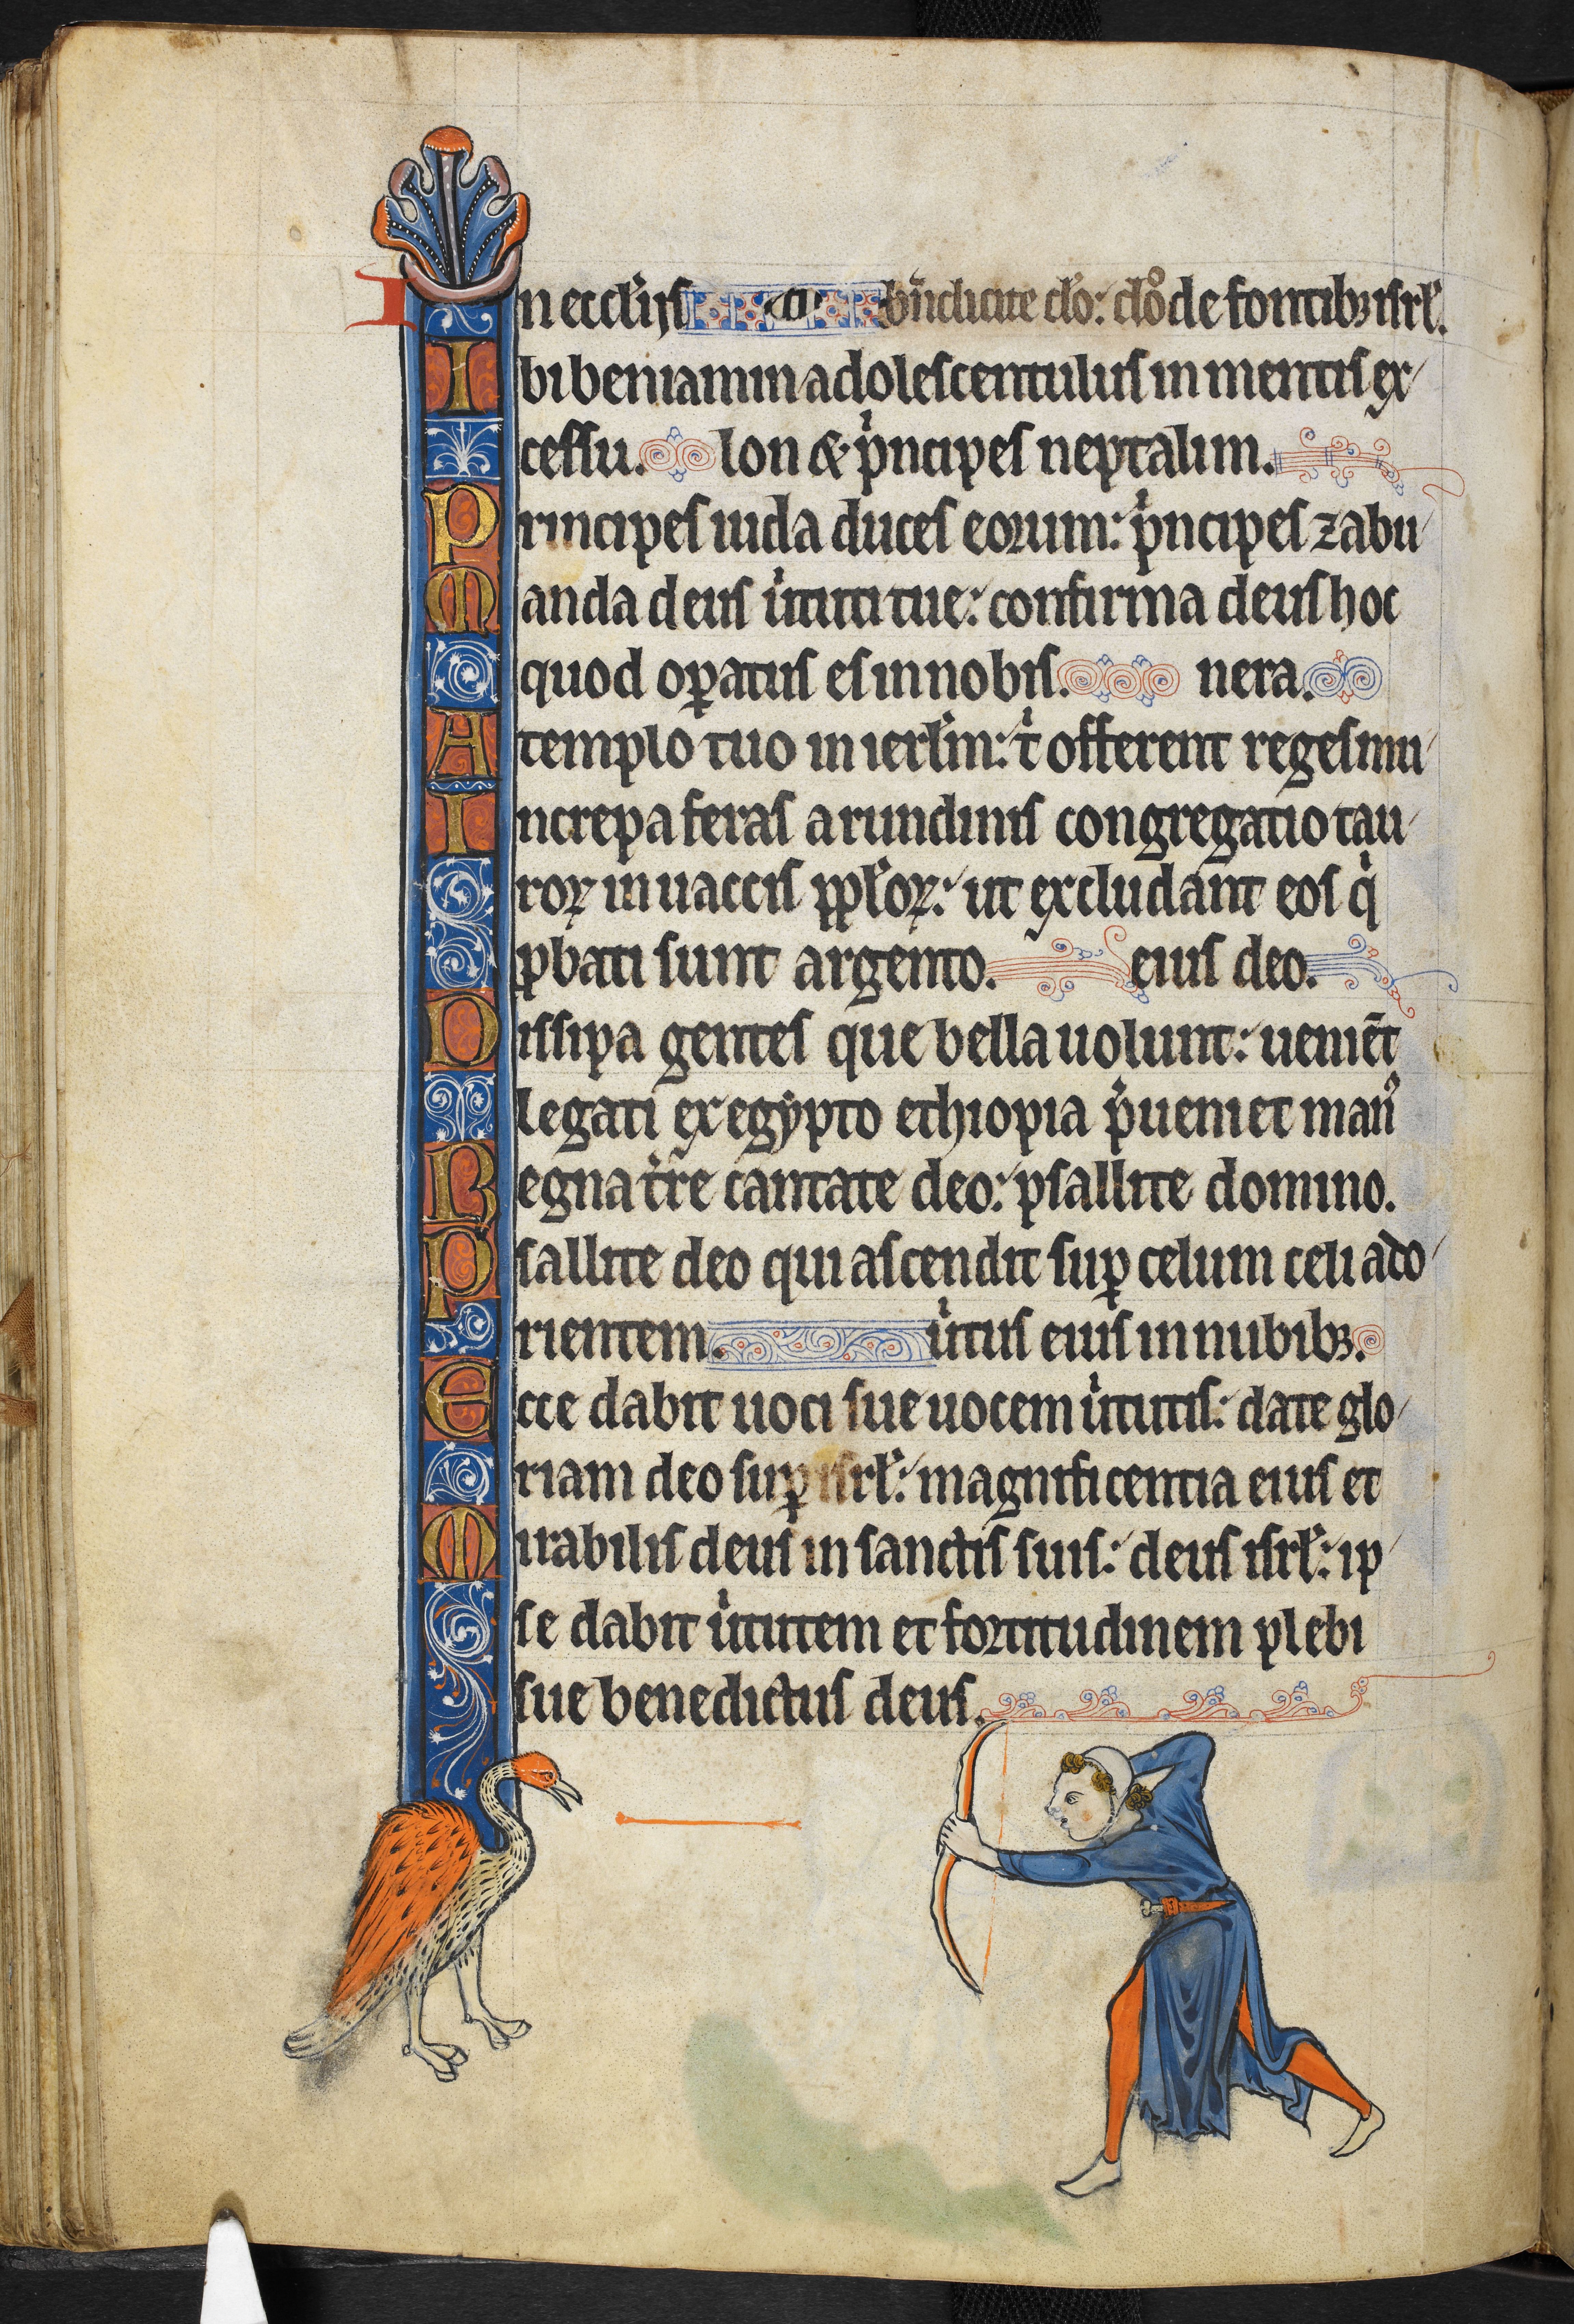 In eccl'ijs bn̄dicite d'o: d'no de fontibꝫ isrl'.
Ibi beniamin adolescentulus in mentis ex
cessu. lon & p'ncipes neptalim.
Principes iuda duces eorum: p'ncipes zabu
Manda deus u'tuti tue: confirma deus hoc
quod oꝑatus es in nobis. nera.
A templo tuo in ierl'm: t' offerent reges mu
Increpa feras arundinis congregatio tau
roꝝ in uaccis ppl'oꝝ: ut excludant eos q'
ꝓbati sunt argento. eius deo.
Dissipa gentes que bella uolunt: ueniēt
legati ex egypto ethiopia p'ueniet man'
Regna t're cantate deo: psallite domino.
Psallite deo qui ascendit suꝑ celum celi ad o
rientem. u'tus eius in nubibꝫ.
Ecce dabit uoci sue uocem u'tutis: date glo
riam deo suꝑ isrl': magnificentia eius et
Mirabilis deus in sanctis suis: deus isrl': ip
se dabit u'tutem et fortitudinem plebi
sue benedictus deus.